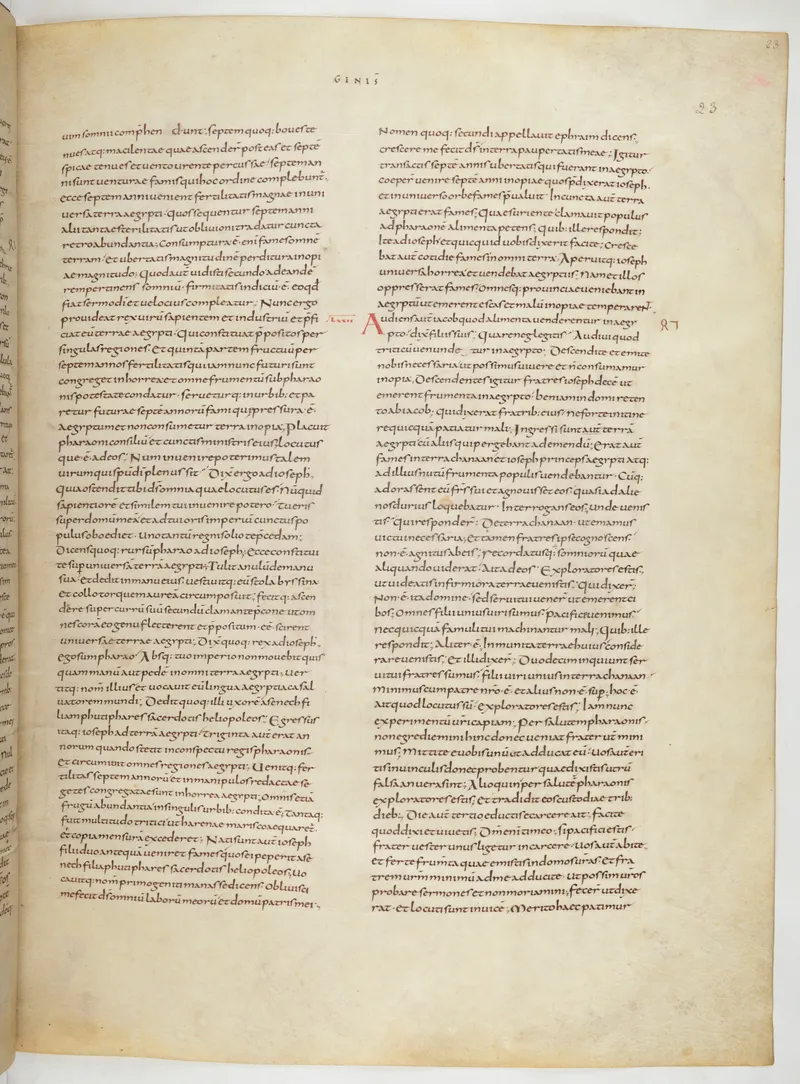 GENIS̄
23
23
uim somnii comp̄hen d·unt; septem quoq: boues te
nues atq: macilentae quae ascender̄ post eas et septē
spicae tenues et uento urente percussae· septem an
ni sunt uenturae famis qui hoc ordine complebunt̄·
ecce septem anni uenient fertilitatis magnae in uni
uersa terra aegypti· quos sequentur septem anni
alii tantae sterilitatis ut obliuioni tradatur cuncta
retro abundantia; Consumptura ē· eni fames omnē
terram· et ubertatis magnitudinē perditura inopi
ae magnitudo; Quod aut̄ uidisti secundo ad eandē
rem pertinens somniū· firmitatis indiciū ē· eo qd̄
fiat sermo dī et uelocius compleatur; Nunc ergo
prouideat rex uirū sapientem et industriū et p̄fi
ciat eū terrae aegypti· Qui constituat p̄positos per
singulas regiones· Et quintā partem fructuū per
septem annos fertilitatis qui iam nunc futuri sunt
congreget in horrea et omne frumentū sub pharao
nis potestate condatur· seruetur q: in urbib; et pa
retur futurae septē annorū fami qui pressura· ē·
aegyptum et non consumetur terra inopia; Placuit
pharaoni consiliū et cunctis ministris eius; Locutus
que· ē· ad eos; Num inuenire poterimus talem
uirum qui sp̄u dī plenus sit· Dix̄ ergo ad ioseph·
Quia ostendit tibi ds̄ omnia quae locutus es· Nūquid
sapientiorē et similem tui inuenire potero· Tu eris
super domū meā et ad tui oris imperiū cunctus po
pulus oboediet· Uno tantū regni solio te p̄cedam;
Dicens quoq: rursū pharao ad ioseph; Ecce constitui
te sup uniuersā terrā aegypti; Tulit anulū de manu
sua· et dedit in manu eius; uestiuitq: eū stola byssina
et collo torquem aureā circumposuit; fecitq: ascen
dere super currū suū secundū clamante p̄cone ut om
nes corā eo genu flecterent et p̄positum· eē· scirent
uniuersae terrae aegypti; Dix̄ quoq: rex ad ioseph·
ego sum pharao· Absq: tuo imperio non mouebit quis
quam manū aut pedē in omni terra aegypti; uer
titq: nom̄ illius et uocauit eū lingua aegyptiaca sal
uatorem mundi; Dedit quoq: illi uxorē aseneth fi
liam phutiphares sacerdotis heliopoleos; Egressus
itaq: ioseph ad terrā aegypti· triginta aut̄ erat an
norum quando stetit in conspectu regis pharaonis·
et circumiuit omnes regiones aegypti; Uenitq: fer
tilitas septem annorū et in manipulos redactae se
getes congregatae sunt in horrea aegypti; Omnis etiā
frugū abundantia in singulis urbib: condita ē; Tantaq:
fuit multitudo tritici ut harenae maris coaequaret̄·
et copia mensurā excederet; Nati sunt aut̄ ioseph
filii duo antequā ueniret fames quos ei peperit ase
nech filia phutiphares sacerdotis heliopoleos; Uo
cauitq: nom̄ primogeniti manasse dicens· Obliuisci
me fecit ds̄ omniū laborū meorū et domū patris mei·,
Nomen quoq: secundi appellauit ephraim dicens;
crescere me fecit ds̄ in terra paupertatis meae; Igitur
transactis septē annis ubertatis qui fuerant in aegypto·
coeper̄ uenire septē anni inopiae quos p̄dixerat ioseph·
et in uniuerso orbe fames p̄ualuit· In cuncta aut̄ terra
aegypti erat fames; Qua esuriente clamauit populus
ad pharaonē alimenta petens; quib: ille respondit;
Ite ad ioseph et quicquid uobis dixerit facite; Cresce
bat aut̄ cotidie fames in omni terra· Aperuitq: ioseph
uniuersa horrea et uendebat aegyptiis· Nam et illos
oppresserat fames; Omnesq: prouinciae ueniebant in
aegyptū ut emerent escas et malū inopiae temperarent̄·
LXXXI
Audiens aut̄ iacob quod alimenta uenderentur in aegy
87
pto· dix̄ filiis suis; Quare neglegitis· Audiui quod
triticū uenunde tur in aegypto; Descendite et emite
nobis necessaria ut possimus uiuere et n̄ consumamur
inopia; Descendentes igitur fratres ioseph decē ut
emerent frumenta in aegypto· beniamin domi reten
to ab iacob; qui dixerat fratrib: eius; ne forte in itine
re quicquā patiatur mali; Ingressi sunt aut̄ terrā
aegypti cū aliis qui pergebant ad emendū; Erat aut̄
fames in terra chanaan et ioseph princeps aegypti atq:
ad illius nutū frumenta populis uendebantur· Cūq:
adorassent eū frs̄ sui et agnouisset eos; quasi ad alie
nos durius loquebatur· Interrogans eos; Unde uenis
tis· Qui responder̄· De terra chanaan· ut emamus
uictui necessaria; Et tamen fratres ipse cognoscens·
non· ē· agnitus ab eis; recordatusq: somniorū quae
aliquando uiderat· Ait ad eos· Exploratores estis·
ut uideatis infirmiora terrae uenistis· Qui dixer̄·
Non· ē· ita domine· sed serui tui uener̄ ut emerent ci
bos; Omnes filii unius uiri sumus· pacifici uenimus·
nec quicquā famuli tui machinantur mali; Quib: ille
respondit; Aliter ē· Inmunita terrae huius conside
rare uenistis· Et illi dixer̄· Duodecim inquiunt ser
ui tui fratres sumus· filii uiri unius in terra chanaan·
minimus cum patre nrō· ē· et alius non· ē· sup̄; hoc ē·
ait quod locutus sū· exploratores estis· Iam nunc
experimentū ur̄i capiam; Per salutem pharaonis·
non egrediemini hinc donec ueniat frater ur̄ mini
mus; Mittite e uobis unū ut adducat eū· Uos aut̄ eri
tis in uinculis donec probentur quae dixistis utrū
falsa an uera sint; Alioquin per salutē pharaonis
exploratores estis· Et tradidit eos custodiae trib:
dieb:; Die aut̄ tertio eductis e carcere ait; facite
quod dixi et uiuetis· Dm̄ eni timeo; si pacifici estis·
frater uester unus ligetur in carcere· Uos aut̄ abite·
et ferte frum̄ta quae emistis in domos uras̄· et fra
trem ur̄m minimū ad me adducite· ut possim uros̄
probare sermones et non moriamini; fecer̄ ut dixe
rat· et locuti sunt inuicē; Merito haec patimur